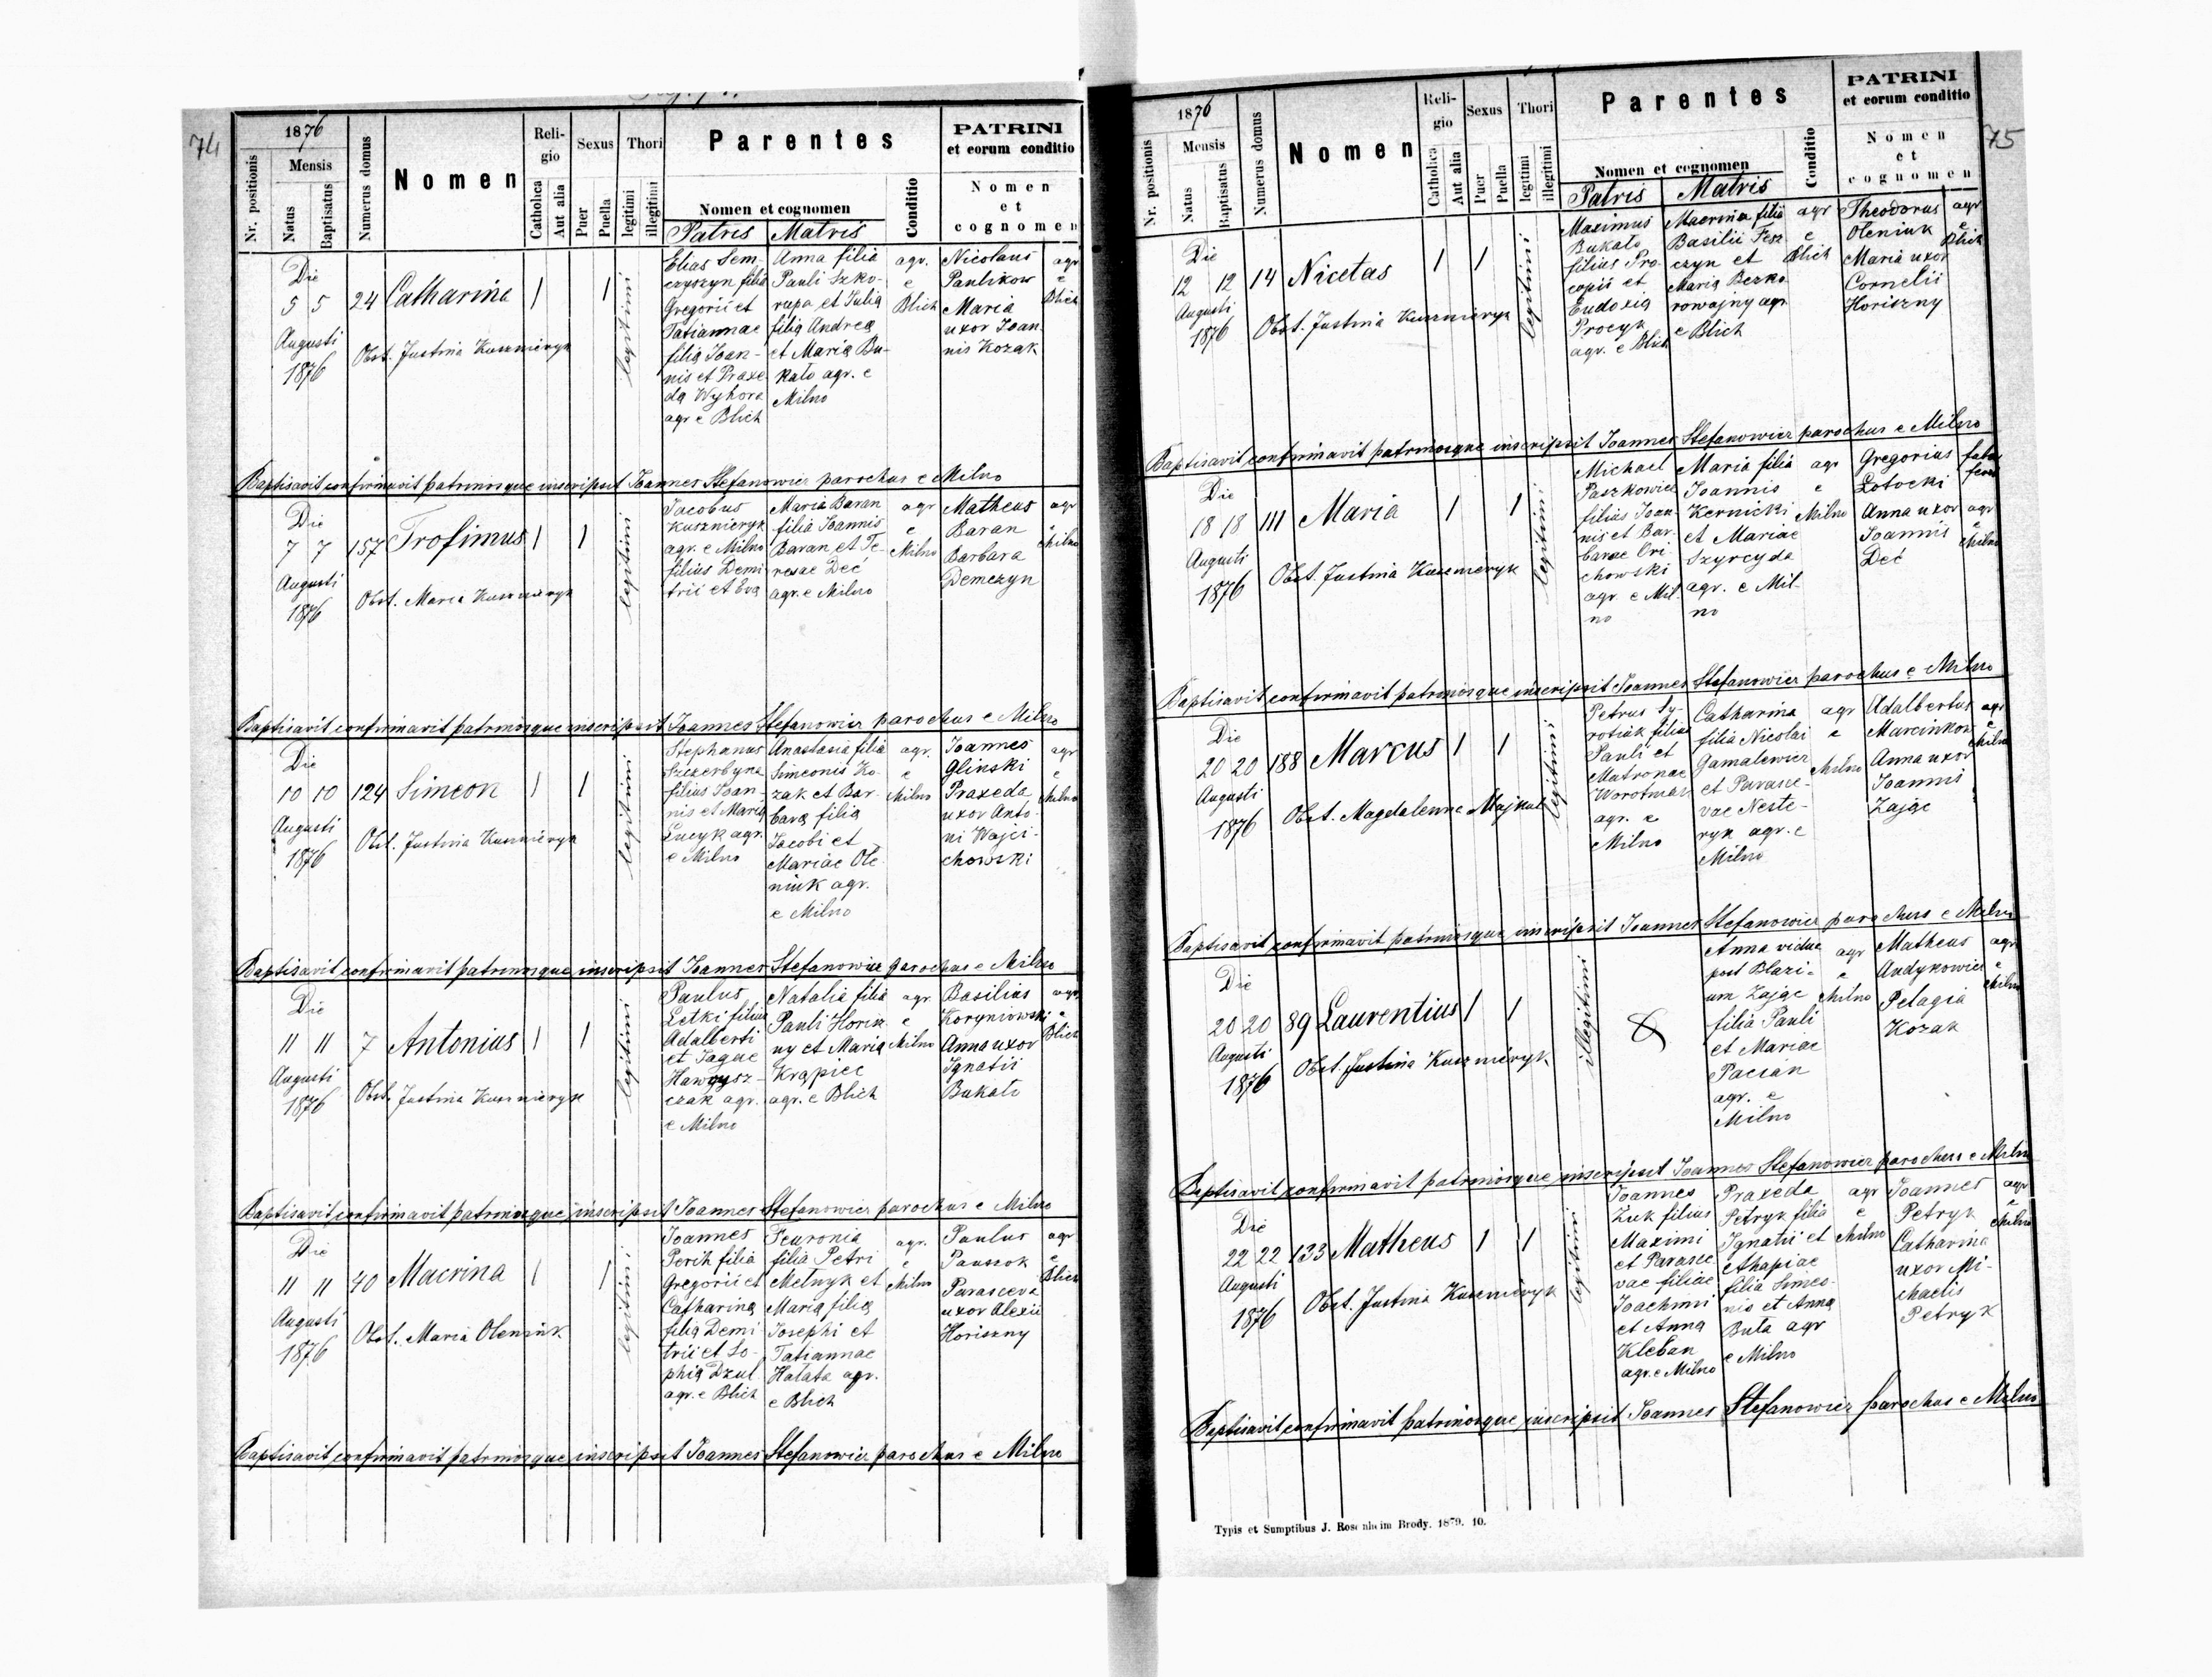 74
1876
Nr. positionis
Mensis
Natus
Baptisatus
Numerus domus
Nomen
Religio
Catholica
Aut alia
Sexus
Puer
Puella
Thori
legitimi
illegitimi
Parentes
Nomen et cognomen
Patris
Matris
Conditio
PATRINI
et eorum conditio
Nomen
et
cognomen
Die
5 5
Augusti
1876
24
Catharina
1
1
Obst. Justina Kuszmeryk
legitimi
Elias Sem-
czyszyn filiᶐ
Gregorii et
Tatiannae
filiᶐ Joan-
nis et Praxe-
dᶐ Wyhora
agr e Blich
Anna filia
Pauli Szko-
rupa et Julia
filiᶐ Andreᶐ
et Mariᶐ Bu-
kato agr. e
Milno
agr.
e
Blich
Nicolaus
Paulikow
Maria
uxor Joan
nis Kozak
agr
e
Blich
Baptisavit confirmavit patrinosque inscripsit Joannes Stefanowicz parochus e Milno
Die
7 7
Augusti
1876
157
Trofimus
1
1
Obst. Maria Kuszmeryk
legitimi
Jacobus
Kuszmeryk
agr. e Milno
filius Demi
trii et Evᶐ
Maria Baran
filia Joannis
Baran et Te-
resae Deć
agr. e Milno
agr
e
Milno
Matheus
Baran
Barbara
Demczyn
agr
e
Milno
Baptisavit confirmavit patrinosque inscripsit Joannes Stefanowicz parochus e Milno
Die
10 10
Augusti
1876
124
Simeon
1
1
Obst. Justina Kuszmeryk
legitimi
Stephanus
Szczerbyna
filius Joan-
nis et Mariᶐ
Lucyk agr.
e Milno
Anastasia filia
Simeonis Ko-
zak et Bar-
barᶐ filia
Jacobi et
Mariae Ole
niuk agr.
e Milno
agr.
e
Milno
Joannes
Glinski
Praxeda
uxor Anto-
ni Wojci-
chowski
agr
e
Milno
Baptisavit confirmavit patrinosque inscripsit Joannes Stefanowicz parochus e Milno
Die
11 11
Augusti
1876
7
Antonius
1
1
Obst. Justina Kuszmeryk
legitimi
Paulus
Letki filius
Adalberti
et Jagne
Hawrysz-
czak agr.
e Milno
Natalia filia
Pauli Horisz
ny et Mariᶐ
Krąpiec
agr. e Blich
agr.
e
Milno
Basilius
Koryniowski
Anna uxor
Ignatii
Bukato
agr.
e
Blich
Baptisavit confirmavit patrinosque inscripsit Joannes Stefanowicz parochus e Milno
Die
11 11
Augusti
1876
40
Macrina
1
1
Obst. Maria Oleniuk
legitimi
Joannes
Perih filiᶐ
Gregorii et
Catharinᶐ
filiᶐ Demi
trii et So-
phiᶐ Dzul
agr. e Blich
Feuronia
filia Petri
Melnyk et
Mariᶐ filiᶐ
Josephi et
Tatiannae
Hatata agr.
e Blich
agr.
e
Milno
Paulus
Pauszok
Parasceva
uxor Alexii
Horiszny
agr
e
Blich
Baptisavit confirmavit patrinosque inscripsit Joannes Stefanowicz parochus e Milno
75
1876
Nr. positionis
Mensis
Natus
Baptisatus
Numerus domus
Nomen
Religio
Catholica
Aut alia
Sexus
Puer
Puella
Thori
legitimi
illegitimi
Parentes
Nomen et cognomen
Patris
Matris
Conditio
PATRINI
et eorum conditio
Nomen
et
cognomen
Die
12 12
Augusti
1876
14
Nicetas
1
1
Obst. Justina Kuszmeryk
legitimi
Maximus
Bukato
filius Pro-
copii et
Eudoxiᶐ
Procyk
agr. e Blich
Macrina filia
Basilii Fesz
czyn et
Mariᶐ Bezko
rowajny agr
e Blich
agr
e
Blich
Theodorus
Oleniuk
Maria uxor
Cornelii
Horiszny
agr
e
Blich
Baptisavit confirmavit patrinosque inscripsit Joannes Stefanowicz parochus e Milno
Die
18 18
Augusti
1876
111
Maria
1
1
Obst. Justina Kuszmeryk
legitimi
Michael
Paszkowicz
filius Joan
nis et Bar-
barae Ori-
chowski
agr e Mil-
no
Maria filia
Joannis
Kernicki
et Mariae
Szyrcyda
agr. e Mil-
no
agr
e
Milno
Gregorius
Lotocki
Anna uxor
Joannis
Deć
agr
e
Milno
Baptisavit confirmavit patrinosque inscripsit Joannes Stefanowicz parochus e Milno
Die
20 20
Augusti
1876
188
Marcus
1
1
Obst. Magdalenne Majkut
legitimi
Petrus Sy-
rotiak filius
Pauli et
Matronae
Worotniak
agr. e
Milno
Catharina
filia Nicolai
Gamalewicz
et Parasce-
vae Neste-
ryk agr. e
Milno
agr
e
Milno
Adalbertus
Marcinkow
Anna uxor
Joannis
Zając
agr
e
Milno
Baptisavit confirmavit patrinosque inscripsit Joannes Stefanowicz parochus e Milno
Die
20 20
Augusti
1876
89
Laurentius
1
1
Obst. Justina Kuszmeryk
illegitimi
Anna vidua
post Blazi-
um Zając
filia Pauli
et Mariae
Paczan
agr. e
Milno
agr
e
Milno
Matheus
Andykowicz
Pelagia
Kozak
agr
e
Milno
Baptisavit confirmavit patrinosque inscripsit Joannes Stefanowicz parochus e Milno
Die
22 22
Augusti
1876
133
Matheus
1
1
Obst. Justina Kuszmeryk
legitimi
Joannes
Zuk filius
Maximi
et Parasce
vae filiae
Joachimi
et Anna
Kleban
agr. e Milno
Praxeda
Petryk filia
Ignatii et
Ahapiae
filia Simeo-
nis et Annᶐ
Buta agr
e Milno
agr
e
Milno
Joannes
Petryk
Catharina
uxor Mi-
chaelis
Petryk
agr
e
Milno
Baptisavit confirmavit patrinosque inscripsit Joannes Stefanowicz parochus e Milno
Typis et Sumptibus J. Rosenheim Brody. 1879. 10.